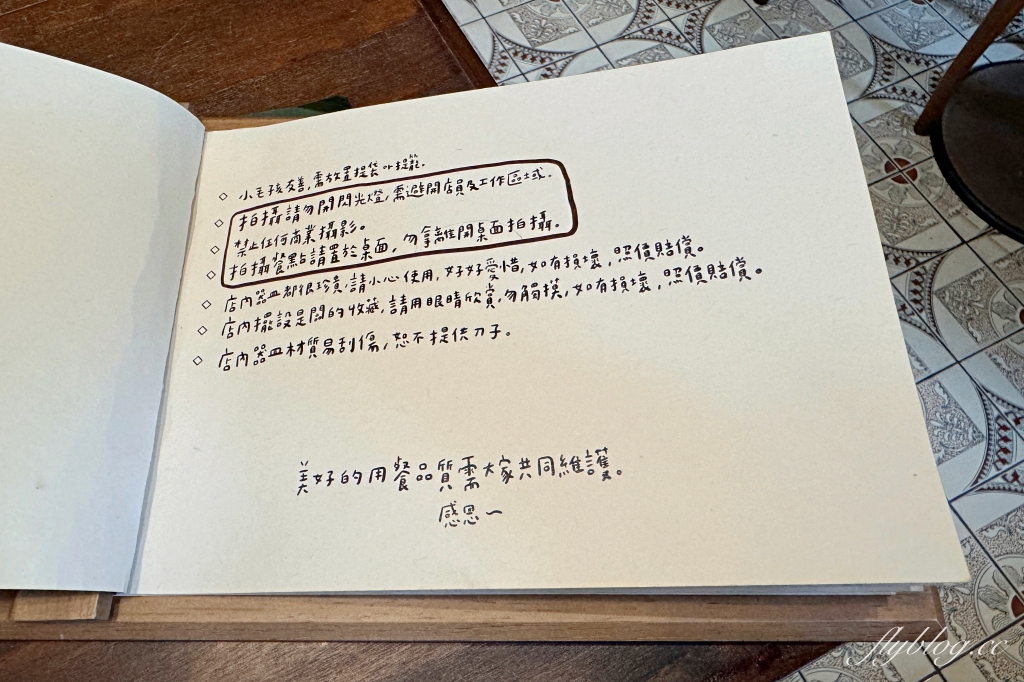 ◇ 小毛孩友善,需放置提袋or提籠。
◇ 拍攝請勿開閃光燈,需避開店員及工作區域.
◇ 禁止任何商業攝影。
◇ 拍攝餐點請置於桌面,勿拿離開桌面拍攝。
◇ 店內器皿都很珍貴,請小心使用,好好愛惜,如有損壞,照價賠償。
◇ 店內擺設是闆的收藏,請用眼睛欣賞,勿觸摸,如有損壞,照價賠償。
◇ 店內器皿材質易刮傷,恕不提供刀子。
美好的用餐品質需大家共同維護。
感恩~
flyblog.cc